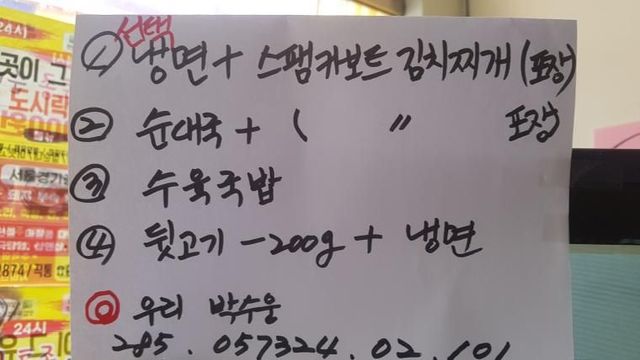 선택
① 냉면 + 스팸카보트 김치찌개 (포장)
② 순대국 + ( 〃 포장
③ 수육국밥
④ 뒷고기 - 200g + 냉면
◎ 우리 박수웅
285. 057324. 02. 101
24시
곳이 그
도시락
서울경기
2874/곡통
24시